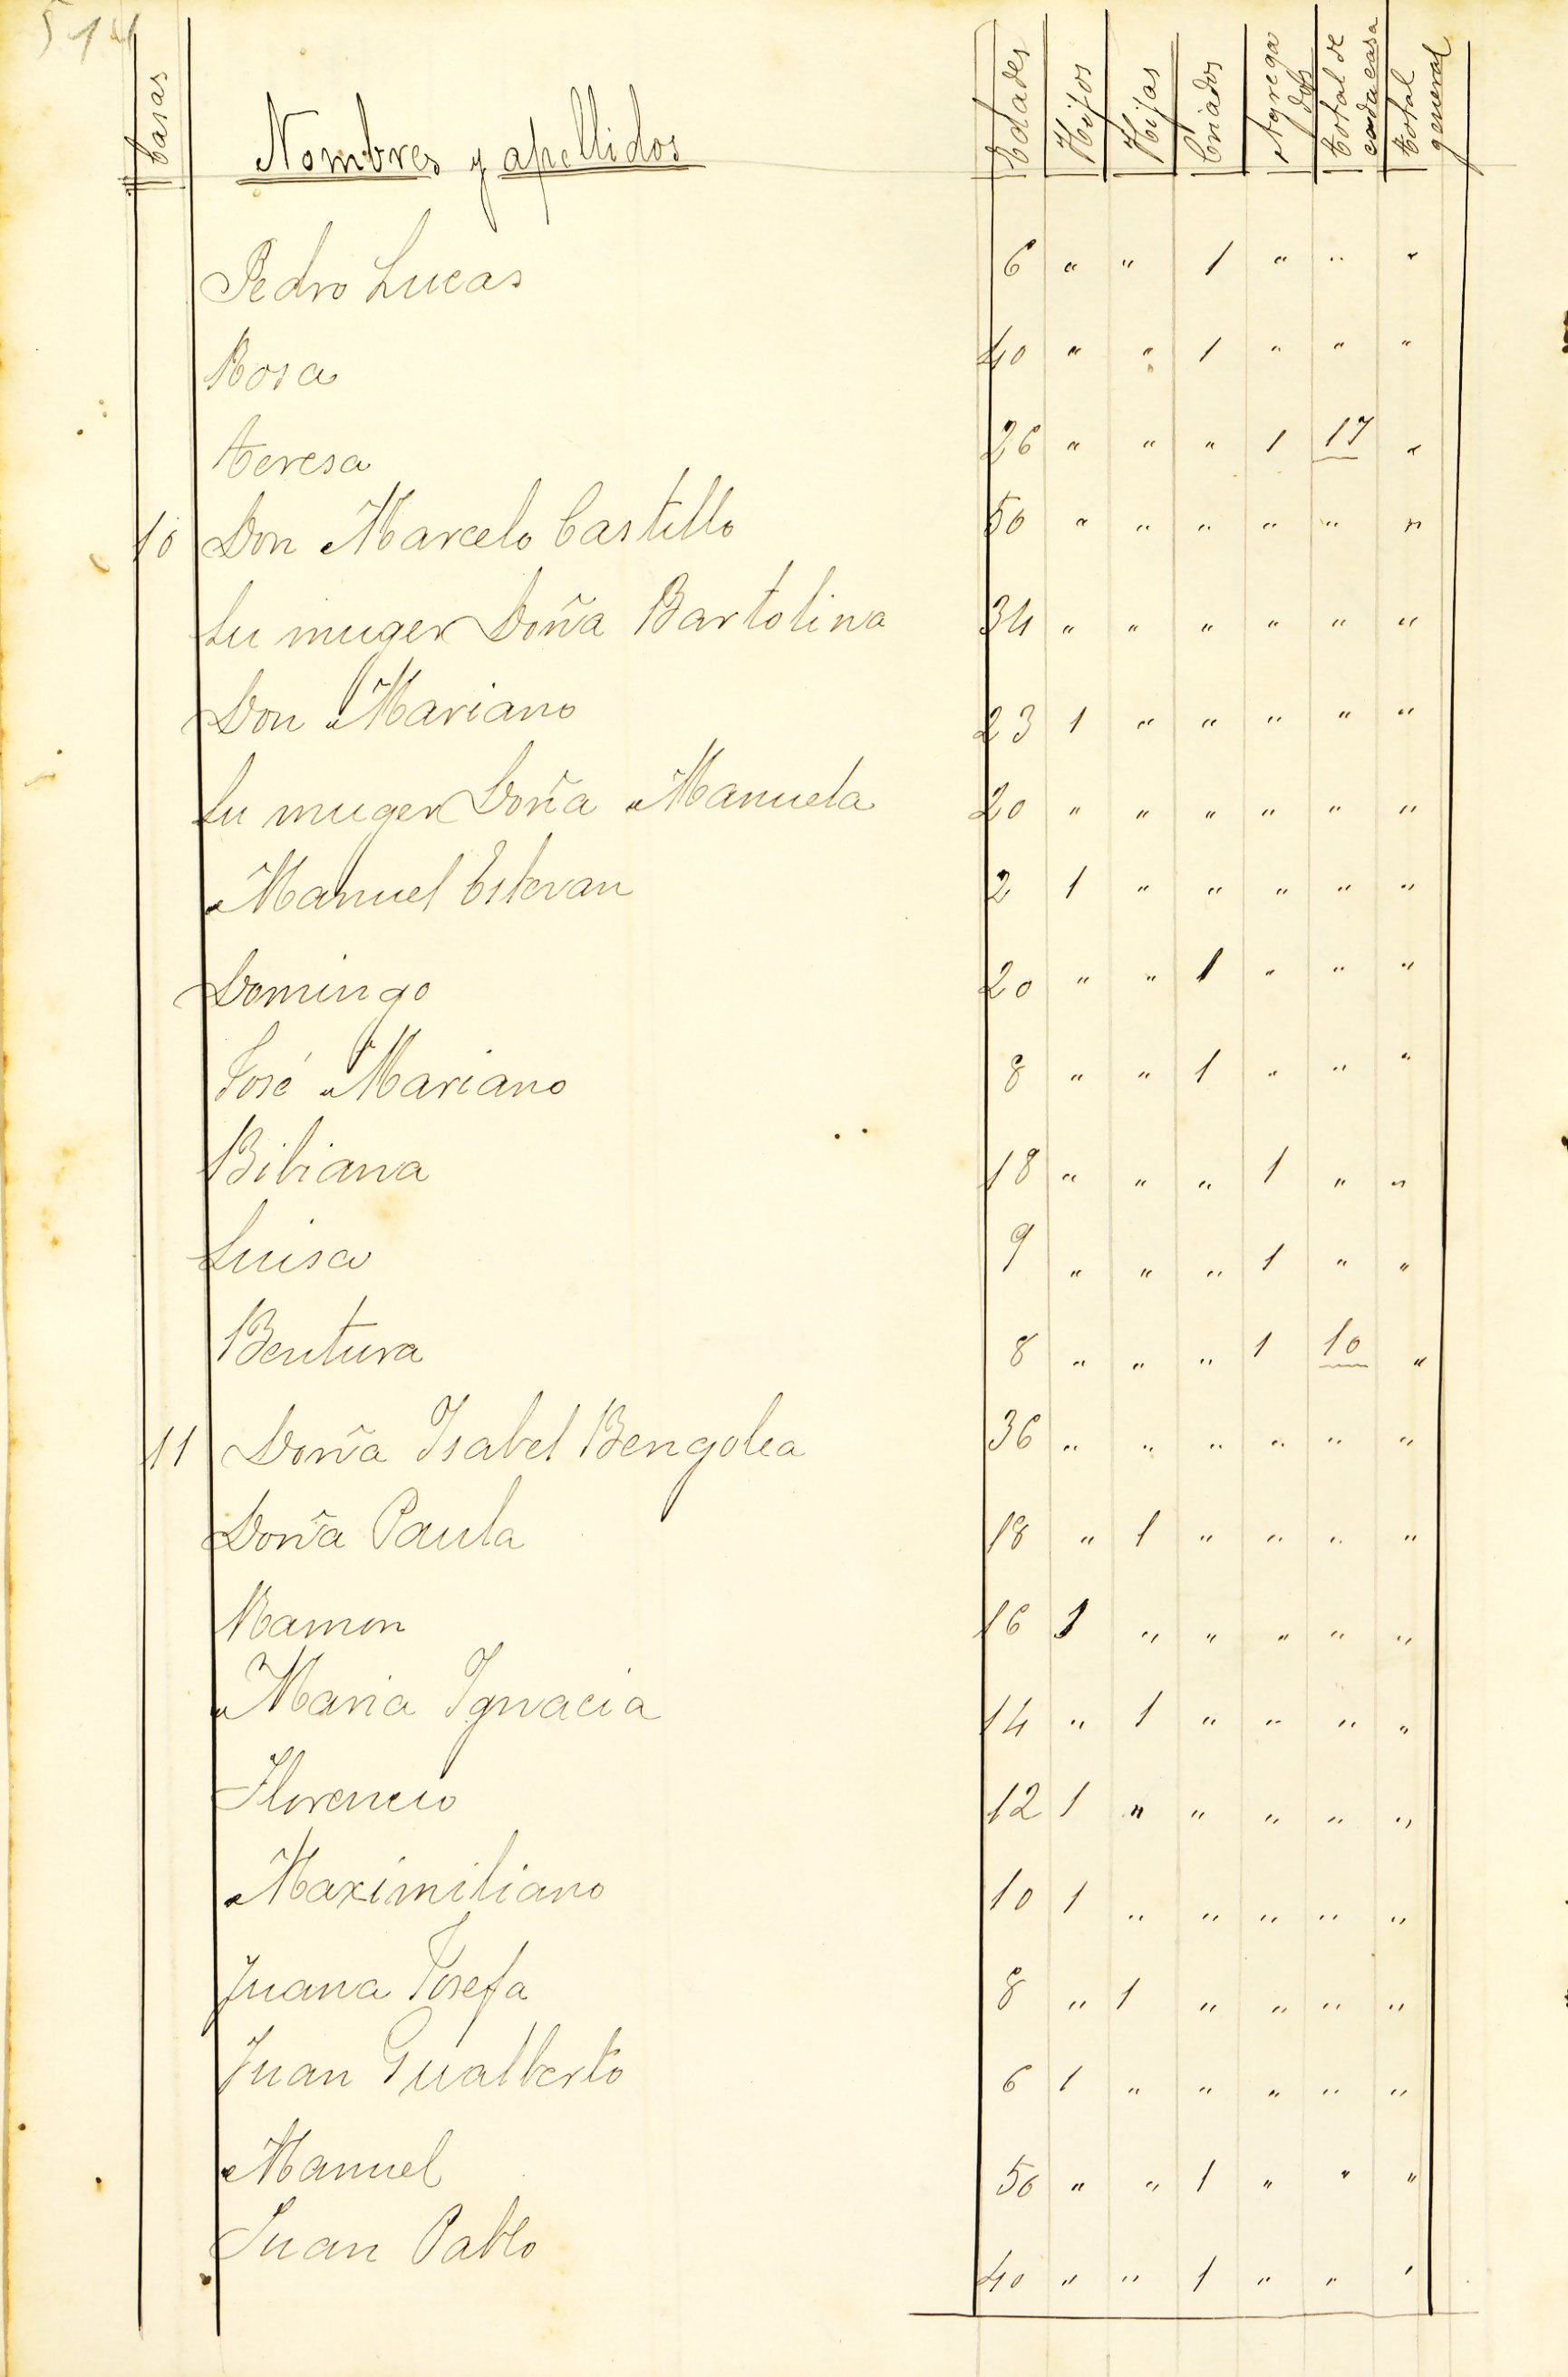 514
Casas Nombres y apellidos Edades Hijos Hijas Criados Agregados Total de cada casa Total general
Pedro Lucas 6 " " 1 " " "
Rosa 40 " " 1 " " "
Teresa 26 " " " 1 17 "
10 Don Marcelo Castillo 50 " " " " " "
Su muger Doña Bartolina 34 " " " " " "
Don Mariano 23 1 " " " " "
Su muger Doña Manuela 20 " " " " " "
Manuel Estevan 2 1 " " " " "
Domingo 20 " " 1 " " "
José Mariano 8 " " 1 " " "
Bibiana 18 " " " 1 " "
Luisa 9 " " " 1 " "
Bentura 8 " " " 1 10 "
11 Doña Isabel Bengolea 36 " " " " " "
Doña Paula 18 " 1 " " " "
Ramon 16 1 " " " " "
Maria Ignacia 14 " 1 " " " "
Florencio 12 1 " " " " "
Maximiliano 10 1 " " " " "
Juana Josefa 8 " 1 " " " "
Juan Gualberto 6 1 " " " " "
Manuel 50 " " 1 " " "
Juan Pablo 40 " " 1 " " "